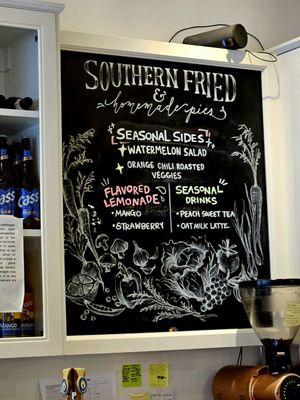 SOUTHERN FRIED
&
homemade pies
SEASONAL SIDES
WATERMELON SALAD
ORANGE CHILI ROASTED
VEGGIES
FLAVORED
LEMONADE
• MANGO
• STRAWBERRY
SEASONAL
DRINKS
• PEACH SWEET TEA
• OAT MILK LATTE.
Cass
Cass